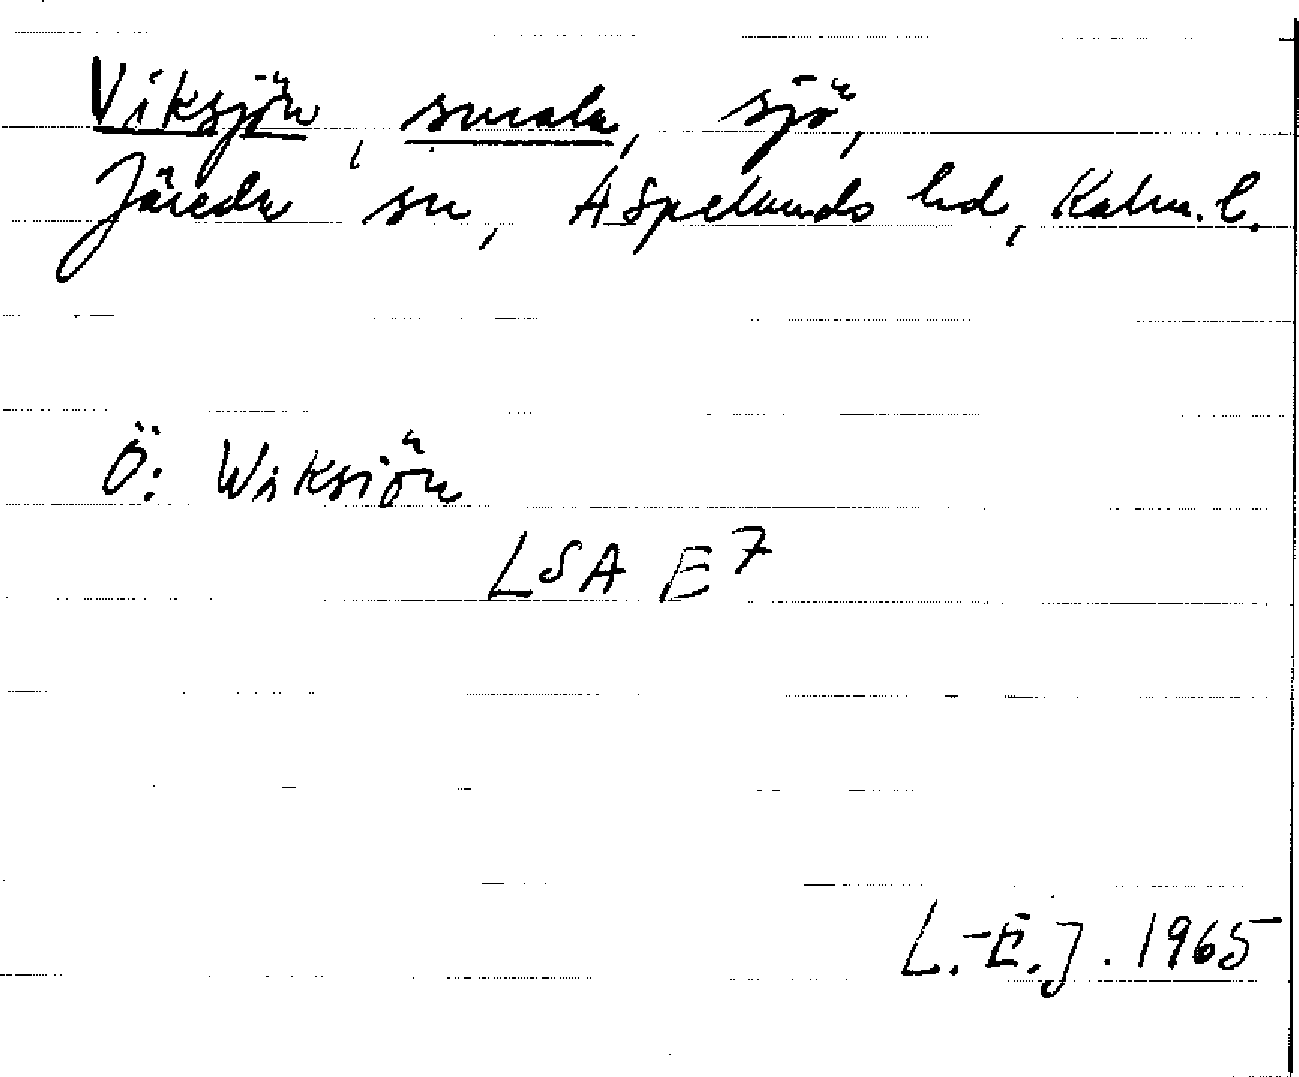 Viksjön, smala, sjö,
Järeda sn, Aspelands hd, Kalm. l.
Ö: Wiksiön
LSA E7
L.-E.J. 1965